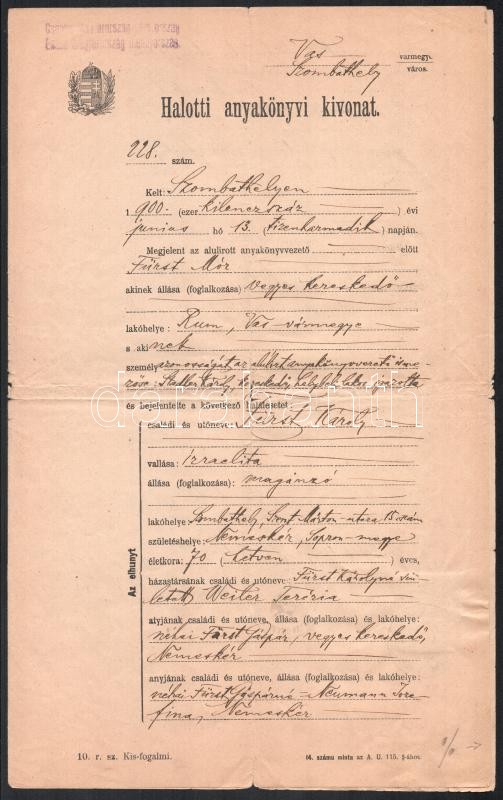 Vas vármegye
Szombathely város.
Halotti anyakönyvi kivonat.
228. szám.
Kelt: Szombathelyen
1900. (ezer kilenczszáz) évi
junius hó 13. (tizenharmadik) napján.
Megjelent az alulirott anyakönyvvezető előtt
Fürst Mór
akinek állása (foglalkozása) vegyes kereskedő
lakóhelye: Rum, Vas-vármegye
s akinek
személyazonosságát az alulirt anyakönyvvezető
Károly, kereskedő, helybeli lakos igazolta
és bejelentette a következő halálesetet:
családi és utóneve: Fürst Károly
vallása: izraelita
állása (foglalkozása): magánzó
lakóhelye: Szombathely, Szent Márton-utcza 15 szám
születéshelye: Nemeskér, Sopron-megye
életkora: 70 (hetven) éves,
házastársának családi és utóneve: Fürst Károlyné szü-
letett Weiler Terézia
atyjának családi és utóneve, állása (foglalkozása) és lakóhelye:
néhai Fürst Gáspár, vegyes kereskedő,
Nemeskér
anyjának családi és utóneve, állása (foglalkozása) és lakóhelye:
néhai Fürst Gáspárné Neumann Joze-
fina, Nemeskér
Az elhunyt
10. r. sz. Kis-fogalmi.
14. számu minta az A. U. 115. §-ához.